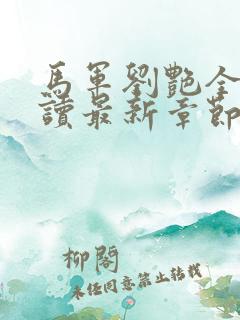 馬軍劉艷全
讀最新章節
柳閣
未经同意禁止转载